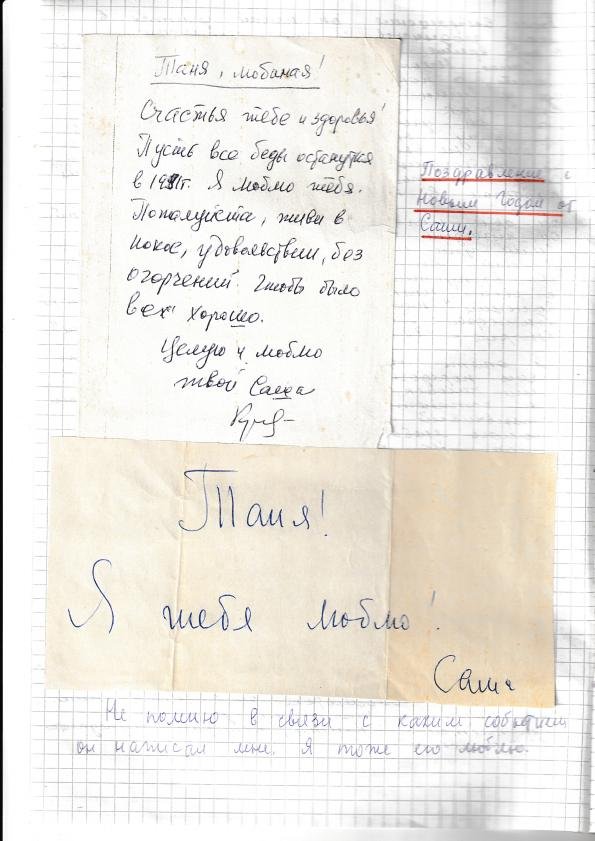 Таня, любимая!
Счастья тебе и здоровья!
Пусть все беды останутся
в 19 г. Я люблю тебя.
Пожалуйста, живи в
покое, удовольствии, без
огорчений. Чтобы было
всё хорошо.
Целую и люблю
твой Саша
Поздравление с
Новым Годом от
Саши.
Таня!
Я тебя люблю!
Саша
Не помню в связи с каким событием
он написал мне. Я тоже его люблю.